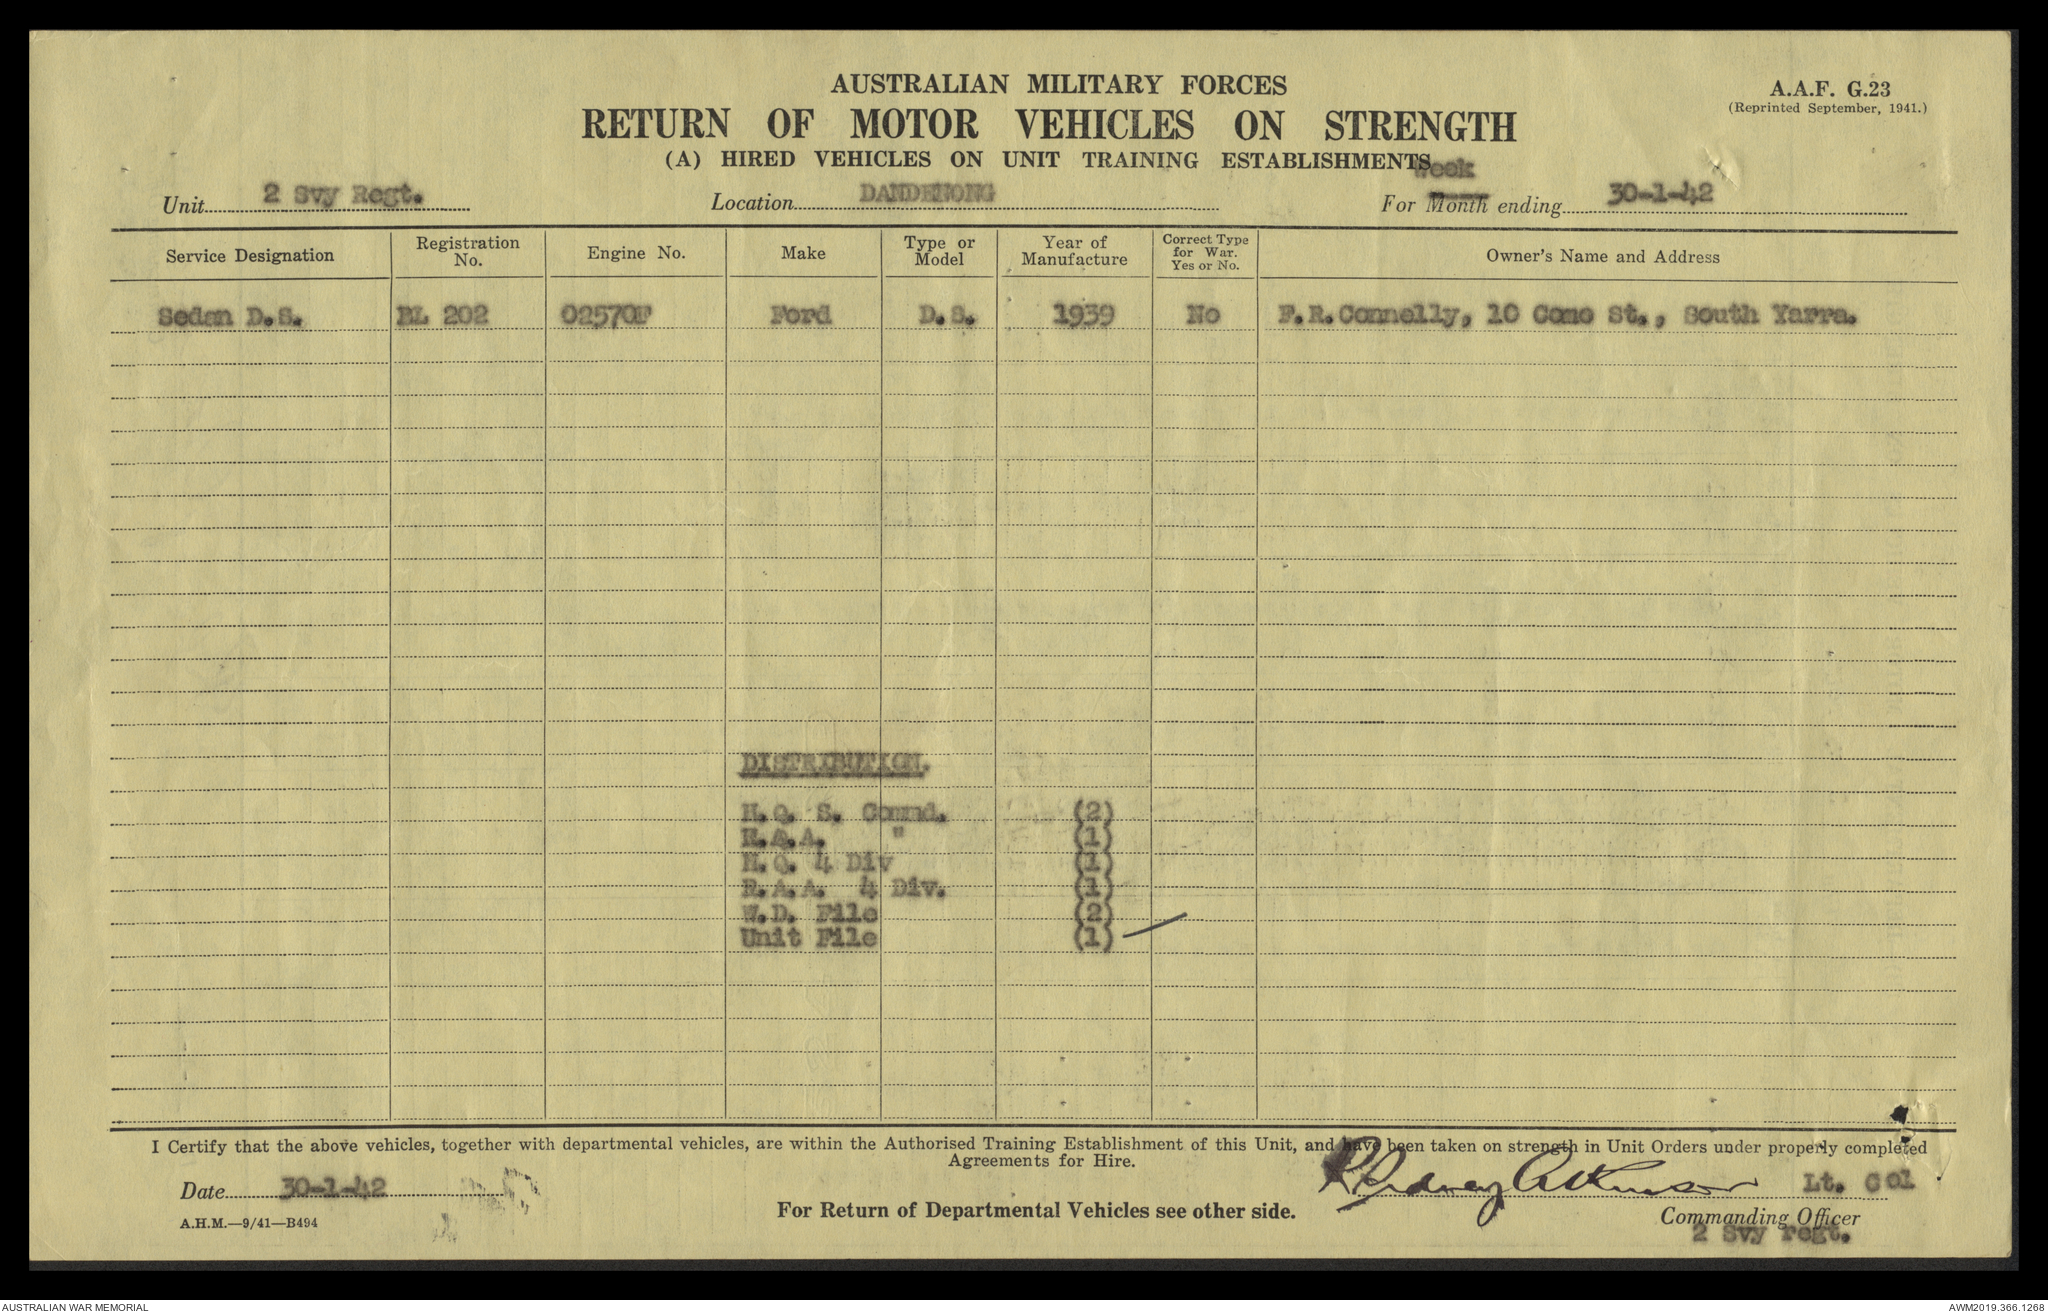 AUSTRALIAN MILITARY FORCES
A.A.F. G.23
RETURN OF MOTOR VEHICLES ON STRENGTH
(Reprinted September, 1941.)
(A) HIRED VEHICLES ON UNIT TRAINING ESTABLISHMENTS
Week
Unit 2 Svy Regt. Location DANDENONG For Month ending 30-1-42
Service Designation Registration No. Engine No. Make Type or Model Year of Manufacture Correct Type for War. Yes or No. Owner's Name and Address
Sedan D.S. BL 202 02570F Ford D.S. 1939 No F.R.Connelly, 10 Como St., South Yarra.
DISTRIBUTION.
H.Q. S. Commd. (2)
R.A.A. " (1)
H.Q. 4 Div (1)
R.A.A. 4 Div. (1)
W.D. File (2)
Unit File (1)
I Certify that the above vehicles, together with departmental vehicles, are within the Authorised Training Establishment of this Unit, and have been taken on strength in Unit Orders under properly completed
Agreements for Hire.
Date 30-1-42
Atkinson Lt. Col
For Return of Departmental Vehicles see other side.
Commanding Officer
A.H.M.—9/41—B494
2 Svy regt.
AUSTRALIAN WAR MEMORIAL
AWM2019.366.1268